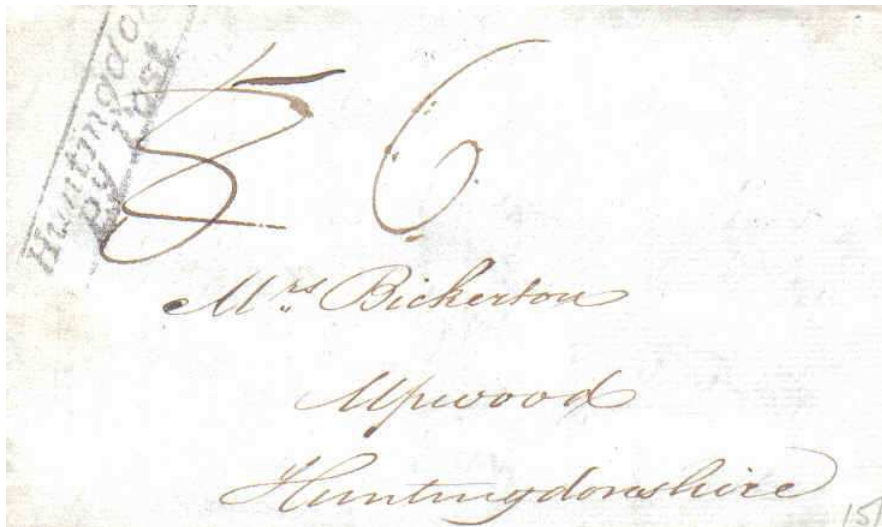 Huntingdon
Py Post
5 6
Mrs Bickerton
Upwood
Huntingdonshire
151